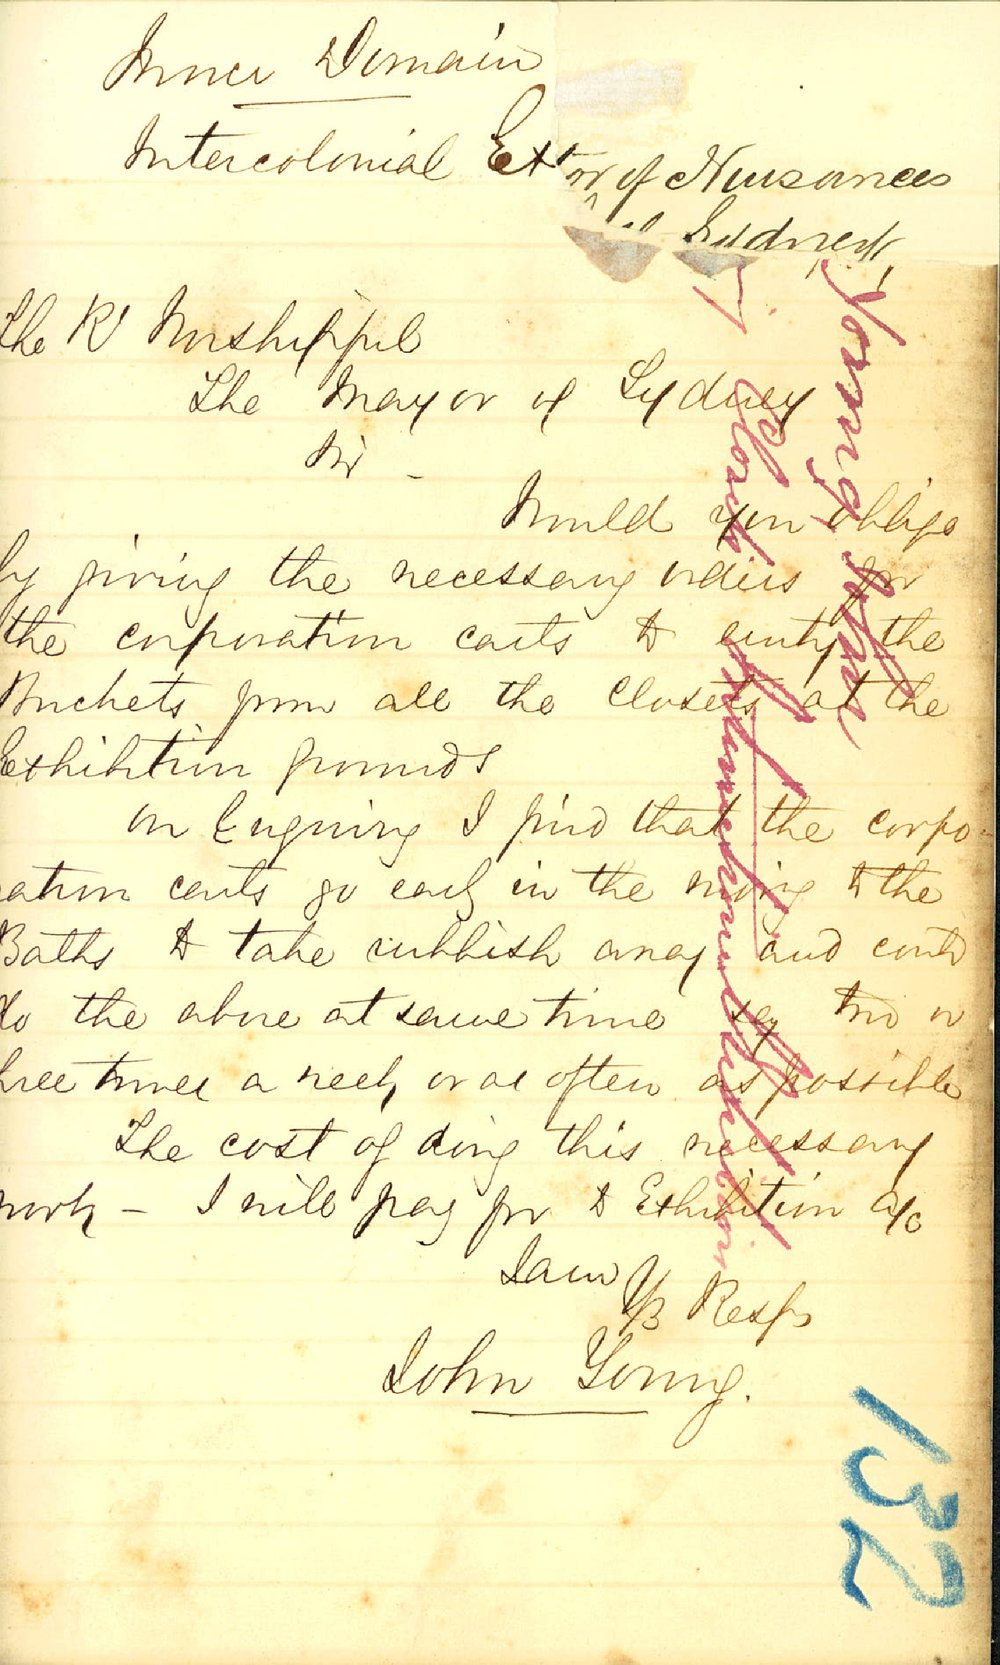 Inner Domain
Intercolonial Ex
tor of Nuisances
Sydney
The Rt Worshipful
The Mayor of Sydney
Sir -
Would you oblige
by giving the necessary orders for
the corporation carts to empty the
Buckets from all the closets at the
Exhibition grounds
On Enquiring I find that the corpo-
ration carts go early in the morning to the
Baths to take rubbish away and could
do the above at same time say two or
three times a week or as often as possible
The cost of doing this necessary
work - I will pay for to Exhibition a/c
I am
Yrs Respy
John Young.
Young John
Closets Intercolonial Exhibition
132